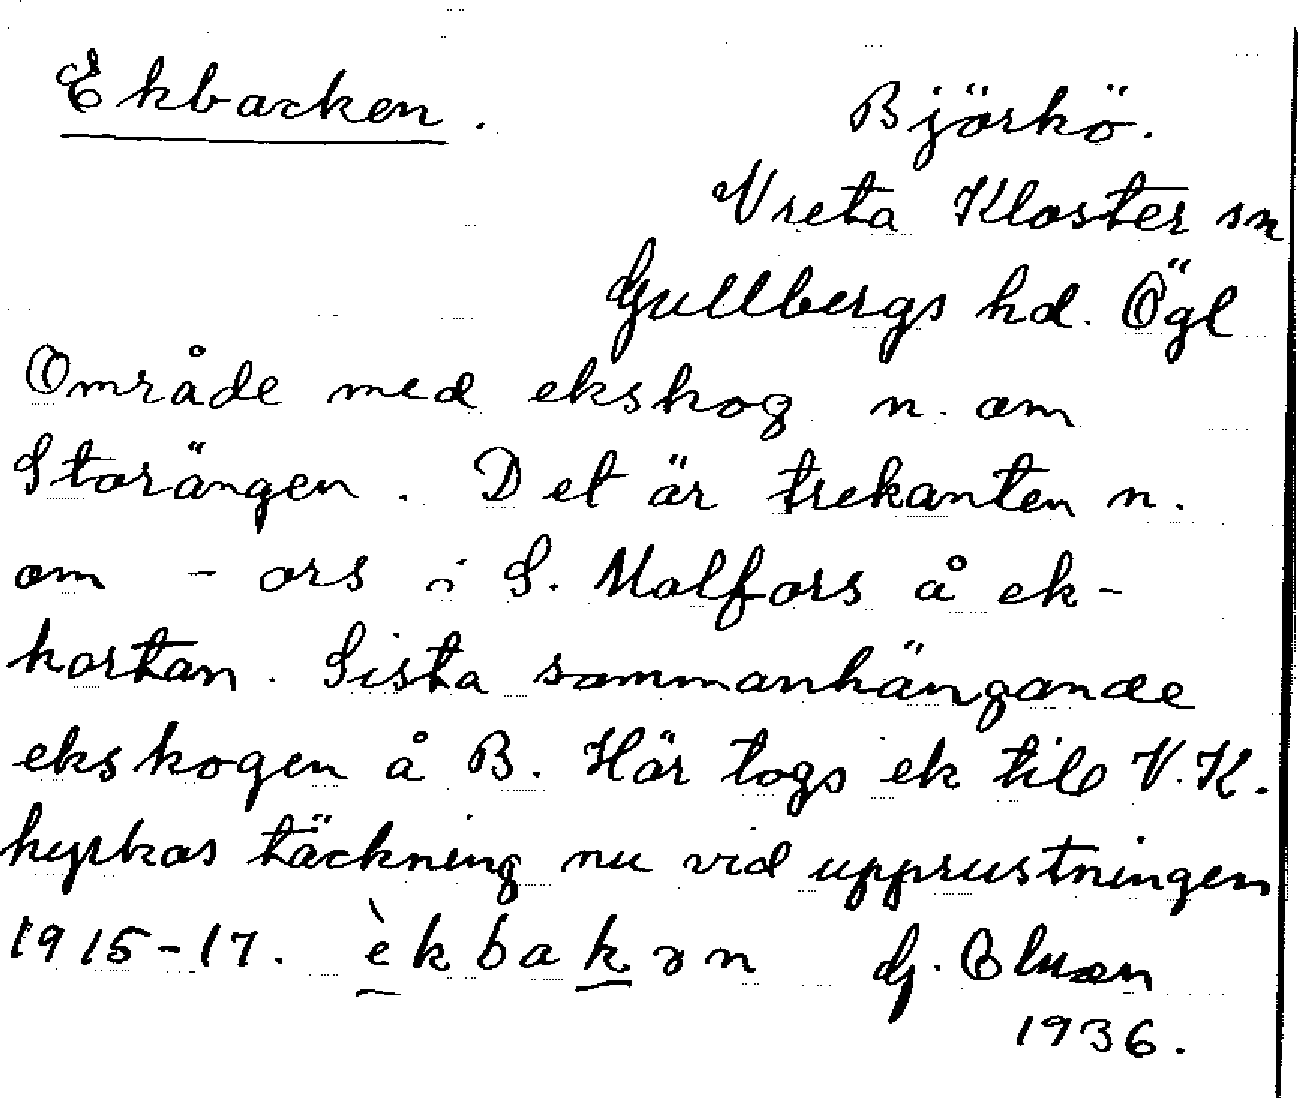 Ekbacken.
Björkö.
Vreta Kloster sn
Gullbergs hd. Ögl
Område med ekskog n. om
Storängen. Det är trekanten n.
om - ors i S. Malfors å ek-
kartan. Sista sammanhängande
ekskogen å B. Här togs ek till V.K.
kyrkas täckning nu vid upprustningen
1915-17. èkbakən G.
1936.